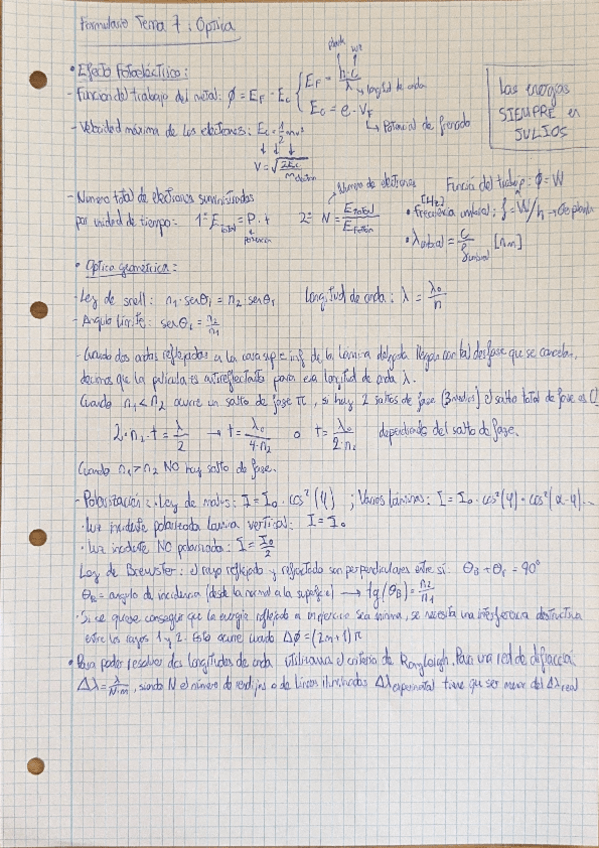 Formulario Tema 7: Óptica
• Efecto Fotoeléctrico:
- Función del trabajo del metal: ϕ = E_F - E_c { E_F = h·c/λ → longitud de onda
plank
E_c = e · V_F
↳ Potencial de frenado
Las energías
SIEMPRE en
JULIOS
- Velocidad máxima de los electrones: E_c = 1/2 mv²
↓ ↓ ↓
V = √(2E_c/m_electrón)
- Número total de electrones suministrados
por unidad de tiempo: 1º E_total = P · t
potencia
2º N = E_total/E_fotón
Número de electrones
Función del trabajo: ϕ = W
[Hz]
• frecuencia umbral: f = W/h → cte plank
• λ_umbral = c/f_umbral [nm]
• Óptica geométrica:
- Ley de snell: n₁ · senθ₁ = n₂ · senθ₂ longitud de onda: λ = λ₀/n
- Ángulo límite: senθ₁ = n₂/n₁
- Cuando dos ondas reflejadas a la cara sup e inf de la lámina delgada llegan con tal desfase que se cancelan,
decimos que la película es antireflectante para esa longitud de onda λ.
Cuando n₁ < n₂ ocurre un salto de fase π, si hay 2 saltos de fase (3 medios) el salto total de fase es 0
2 · n₂ · t = λ/2 → t = λ₀/4·n₂ o t = λ₀/2·n₂ dependiendo del salto de fase.
Cuando n₁ > n₂ NO hay salto de fase.
- Polarización: · Ley de malus: I = I₀ · cos²(φ) ; Varias láminas: I = I₀ · cos²(φ) · cos²(α-φ)...
· Luz incidente polarizada lámina vertical: I = I₀
· Luz incidente NO polarizada: I = I₀/2
Ley de Brewster: el rayo reflejado y refractado son perpendiculares entre sí: θ_B + θ_r = 90º
θ_B = ángulo de incidencia (desde la normal a la superficie) → tg(θ_B) = n₂/n₁
· Si se quiere conseguir que la energía reflejada sea mínima, se necesita una interferencia destructiva
entre los rayos 1 y 2. Esto ocurre cuando Δϕ = (2m+1)π
• Para poder resolver dos longitudes de onda utilizamos el criterio de Rayleigh. Para una red de difracción:
Δλ = λ/N·m, siendo N el número de rendijas o de líneas iluminadas Δλ_experimental tiene que ser menor del Δλ_real